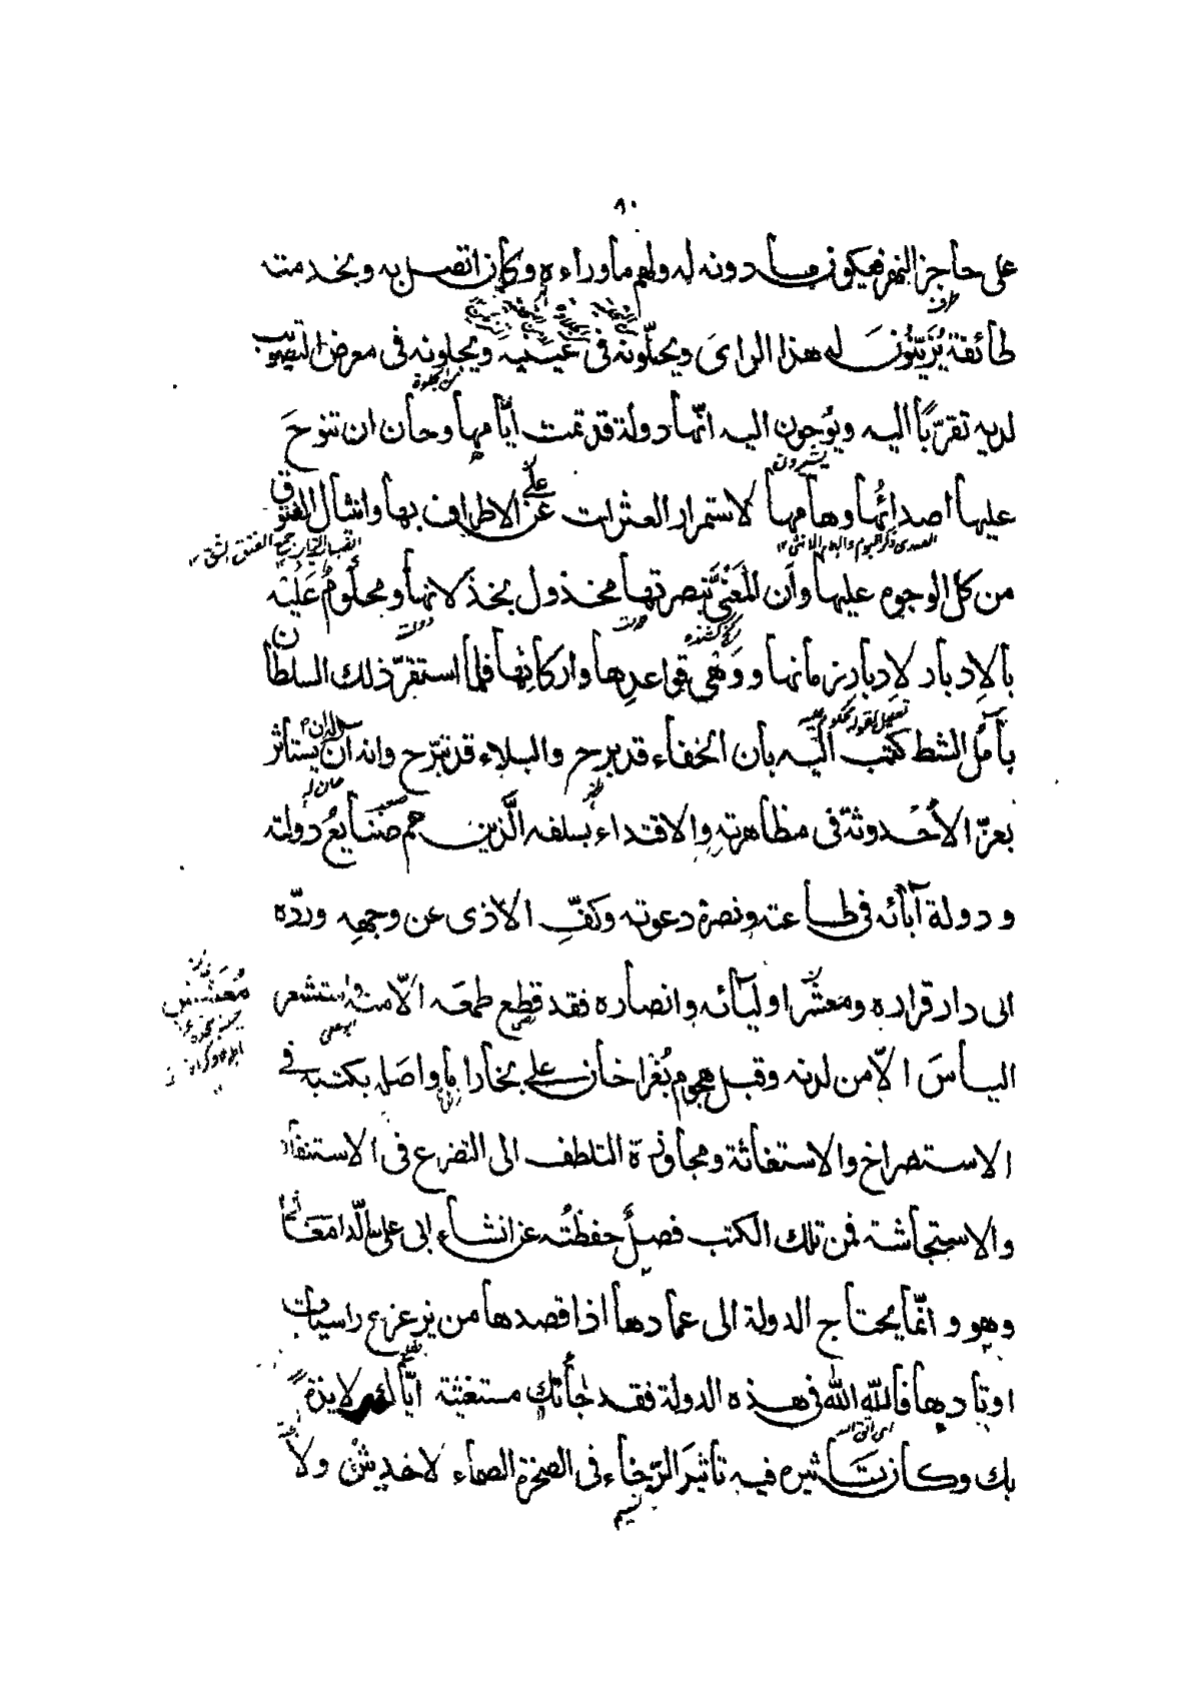 ٨٠
على حاجز النهر فيكون ما دونه له ولهم ما وراءه وكان اتصل به وبخدمته
طائفة يُزَيّنُونَ له هذا الراىَ ويحلّونه فى عينيه ويجلونه فى معرض التصويب
لديه تقرّبًا اليه ويوُحون اليه انّها دولة قد تمت ايّامها وحان ان تنوحَ
يشيرون
عليها اصدائُها وهامها لاستمرار العثرات على الاطراف بها وانثيال الفتوق
من كل الوجوه عليها وأن المَعْنِىَّ بنصرتها مخذول بخذلانها ومحلومٌ عَلَيْه
بالإدبار لإدبار زمانها ووَهْىِ قواعدِها واركانِها فلما استقرّ ذلك السلطان
بآمُل الشط كتب اليه بان الخفاء قد برح والبلاء قد تبرّح وانه آن ان يستأثر
بعزّ الأُحْدوثة فى مظاهرته والاقتداء بسلفه الَّذين هم صَنَايعُ دولته
ودولة آبائه فى طاعته ونصرة دعوته وكفِّ الأذى عن وجهِه وردّه
الى دار قراره ومعشّر اوليائه وانصاره فقد قطع طمعَه الّا منه واستشعر
اليأسَ الّا من لدنه وقبل هجوم بُغْراخان على بخارا ما واصَله بكتبه فى
الاستصراخ والاستغاثة ومجاوزة التلطف الى التضرع فى الاستنفار
والاستجاشة فمن تلك الكتب فصلٌ حفظتُه عن انشاء ابى على الدامَغَانى
وهو و انّما يُحتاج الدولة الى عمادها اذا قصدها من يزعزع راسيات
اوتادها فاللّه اللّه فى هذه الدولة فقد جأتك مستغيثة ايّاك لائذةً
اى اتق الله
بك وكان تَاثيره فيه تاثيرَ الرّخاء فى الصخرة الصماء لا خديشٌ ولا
نسيم